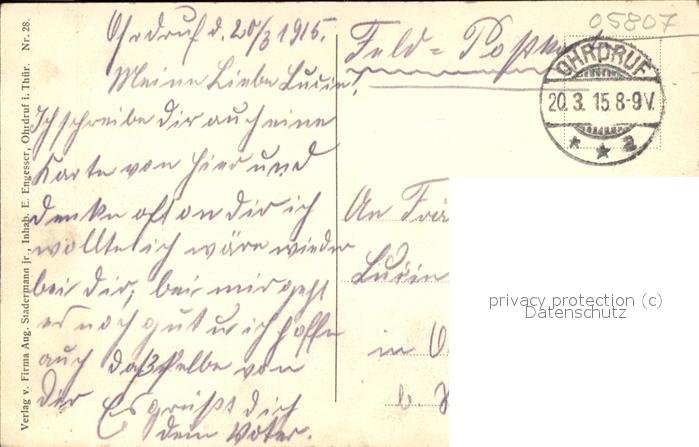 05807
Ohrdruf d. 20/3 1915.
Meine Liebe Lucie!
Ich schreibe dir auch eine
Karte von hier und
denke oft an dir ich
wollte ich wäre wieder
bei dir, bei mir geht
es noch gut u ich hoffe
auch daßelbe von
dir
Es grüßt dich
dein Vater.
Feld=Postkarte
OHRDRUF
20.3.15.8-9V.
* * a
An Frä
Lucie
in O
b.
privacy protection (c)
Datenschutz
Verlag v. Firma Aug. Stadermann jr., Inhab. E. Engesser, Ohrdruf i. Thür. Nr. 28.